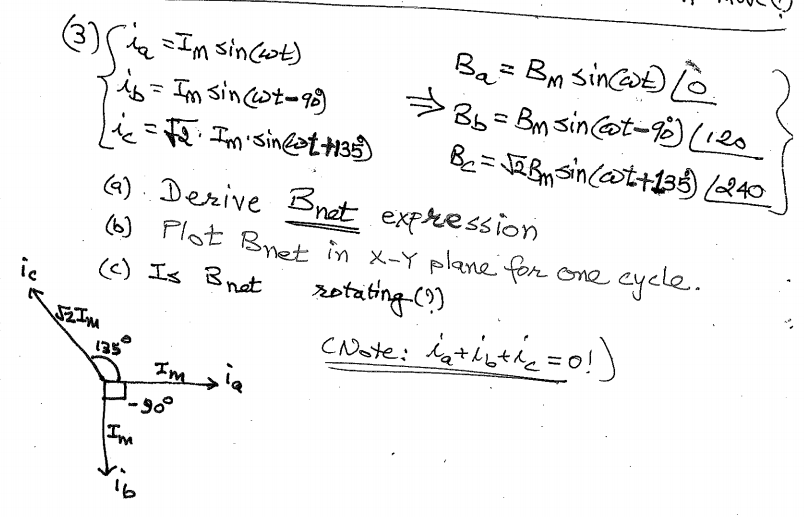 (3) i_a = I_m sin(ωt)
i_b = I_m sin(ωt-90°)
i_c = √2 · I_m · sin(ωt+135°)
⇒
B_a = B_m sin(ωt) ∠0
B_b = B_m sin(ωt-90°) ∠120
B_c = √2 B_m sin(ωt+135°) ∠240
(a) Derive B_net expression
(b) Plot B_net in X-Y plane for one cycle.
(c) Is B_net rotating(?)
(Note: i_a+i_b+i_c = 0!)
i_c
√2 I_m
135°
I_m
i_a
-90°
I_m
i_b